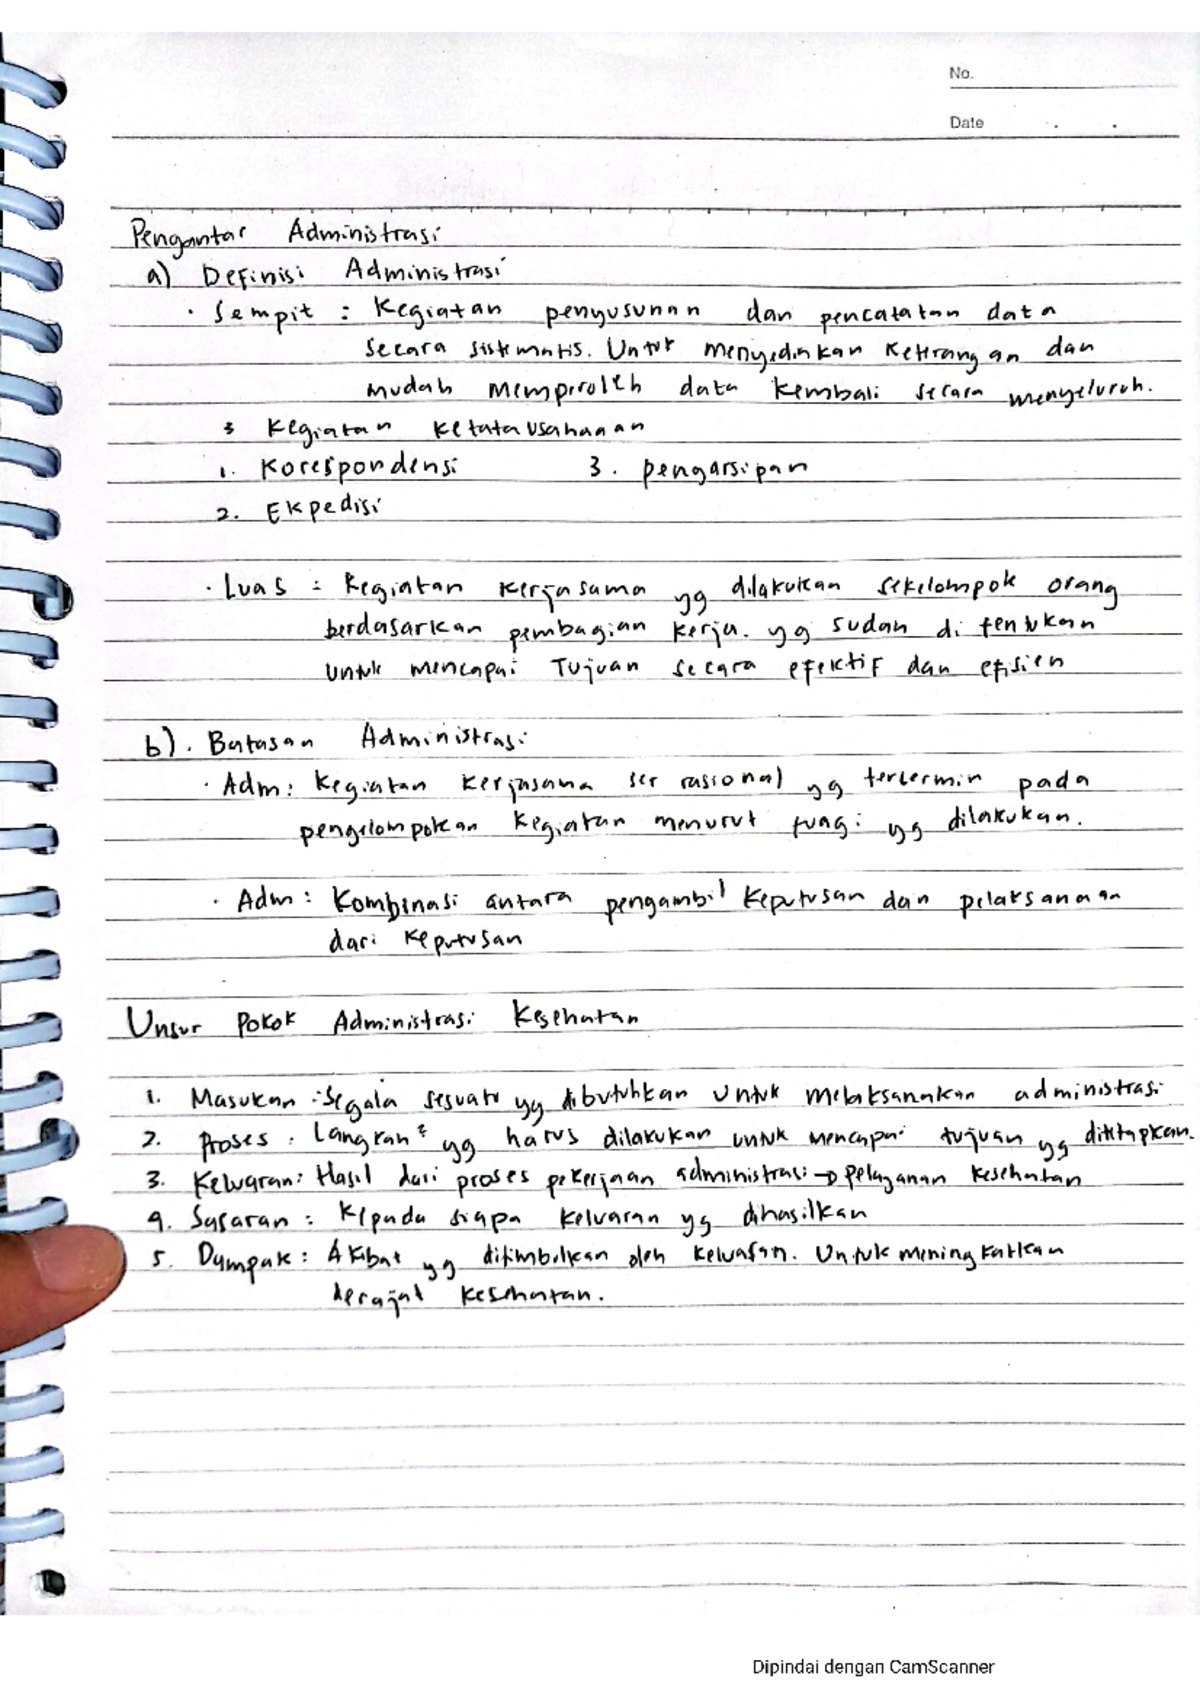 No.
Date
Pengantar Administrasi
a) Definisi Administrasi
· Sempit : Kegiatan penyusunan dan pencatatan data
secara sistematis. Untuk menyediakan Keterangan dan
mudah memperoleh data Kembali secara menyeluruh.
3 Kegiatan Ketatausahaan
1. Korespondensi 3. pengarsipan
2. Ekpedisi
· Luas : Kegiatan Kerjasama yg dilakukan sekelompok orang
berdasarkan pembagian Kerja. yg sudah di tentukan
untuk mencapai Tujuan secara efektif dan efisien
b). Batasan Administrasi
· Adm : Kegiatan Kerjasama rasional yg tercermin pada
pengelompokan Kegiatan menurut fungsi yg dilakukan.
· Adm : Kombinasi antara pengambil Keputusan dan pelaksanaan
dari Keputusan
Unsur Pokok Administrasi Kesehatan
1. Masukan : Segala sesuatu yg dibutuhkan Untuk melaksanakan administrasi
2. Proses : Langkah² yg harus dilakukan untuk mencapai tujuan yg ditetapkan.
3. Keluaran : Hasil dari proses pekerjaan administrasi → pelayanan Kesehatan
4. Sasaran : Kepada siapa Keluaran yg dihasilkan
5. Dampak : Akibat yg ditimbulkan oleh Keluaran. Untuk meningkatkan
derajat Kesehatan.
Dipindai dengan CamScanner